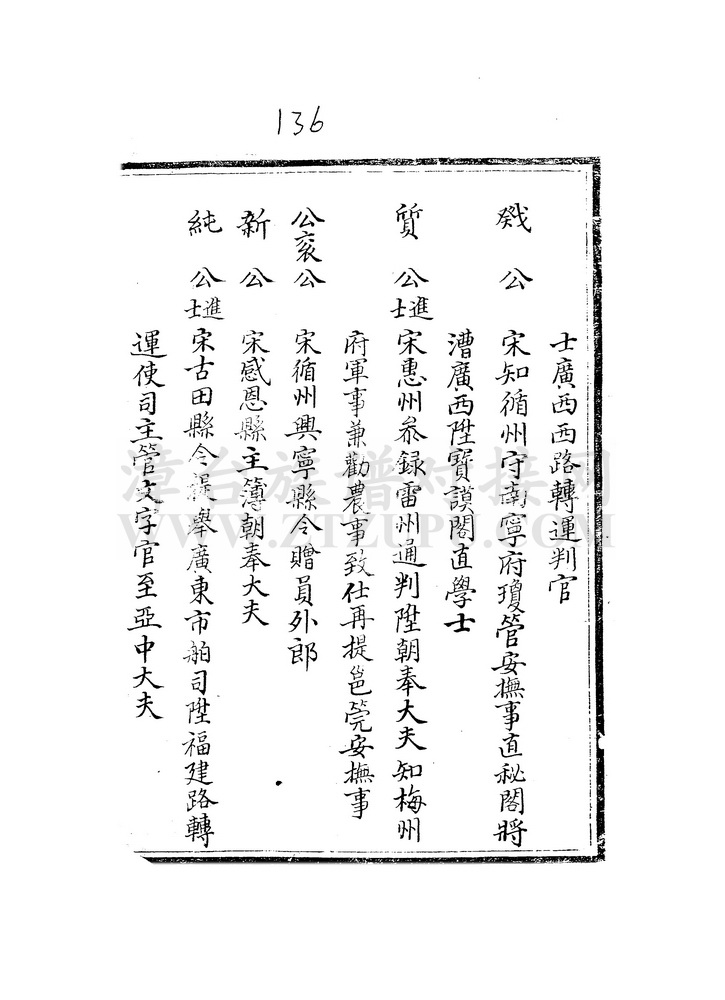 136
士廣西西路轉運判官
戣公 宋知循州守南寧府瓊管安撫事直秘閣將
漕廣西陞寳謨閣直學士
質公進士 宋惠州叅録雷州通判陞朝奉大夫知梅州
府軍事兼勸農事致仕再提邕筦安撫事
公衮公 宋循州興寧縣令贈員外郎
新公 宋感恩縣主簿朝奉大夫
純公進士 宋古田縣令提舉廣東市舶司陞福建路轉
運使司主管文字官至亞中大夫
漳台族譜对接网
WWW.ZTZUPU.COM